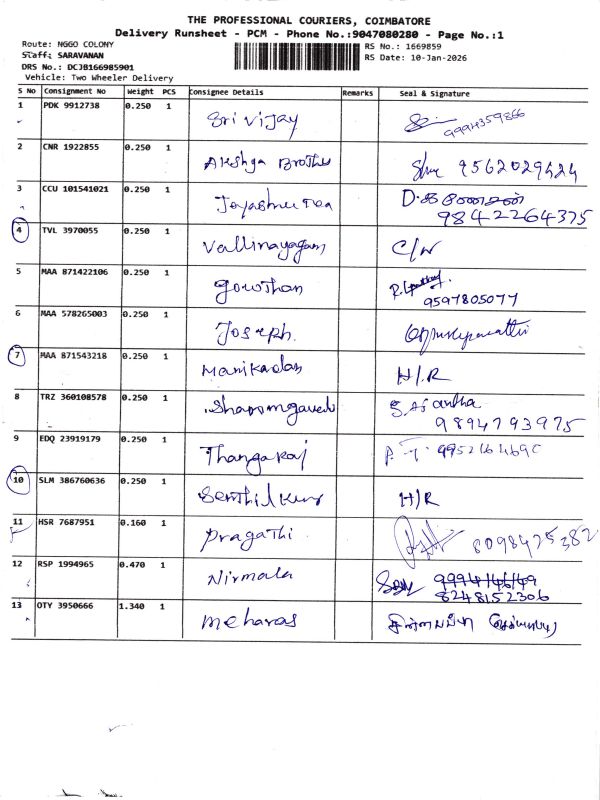 THE PROFESSIONAL COURIERS, COIMBATORE
Delivery Runsheet - PCM - Phone No.:9047080280 - Page No.:1
Route: NGGO COLONY
RS No.: 1669859
Staff: SARAVANAN
RS Date: 10-Jan-2026
DRS No.: DCJB166985901
Vehicle: Two Wheeler Delivery
S No Consignment No Weight PCS Consignee Details Remarks Seal & Signature
1 PDK 9912738 0.250 1 Sri Vijay 9994359866
2 CNR 1922855 0.250 1 Akshya Brothe 9562029424
3 CCU 101541021 0.250 1 Jayashree Tea
9842264375
4 TVL 3970055 0.250 1 Vallinayagam C/N
5 MAA 871422106 0.250 1 Gowthan
9597805077
6 MAA 578265003 0.250 1 Joseph.
7 MAA 871543218 0.250 1 Manikadan H/R
8 TRZ 360108578 0.250 1
9894793975
9 EDQ 23919179 0.250 1 Thangaraj
10 SLM 386760636 0.250 1 Senthil Kum H/R
11 HSR 7687951 0.160 1 Pragathi 8098425382
12 RSP 1994965 0.470 1 Nirmala
8248152306
13 OTY 3950666 1.340 1 Meharas